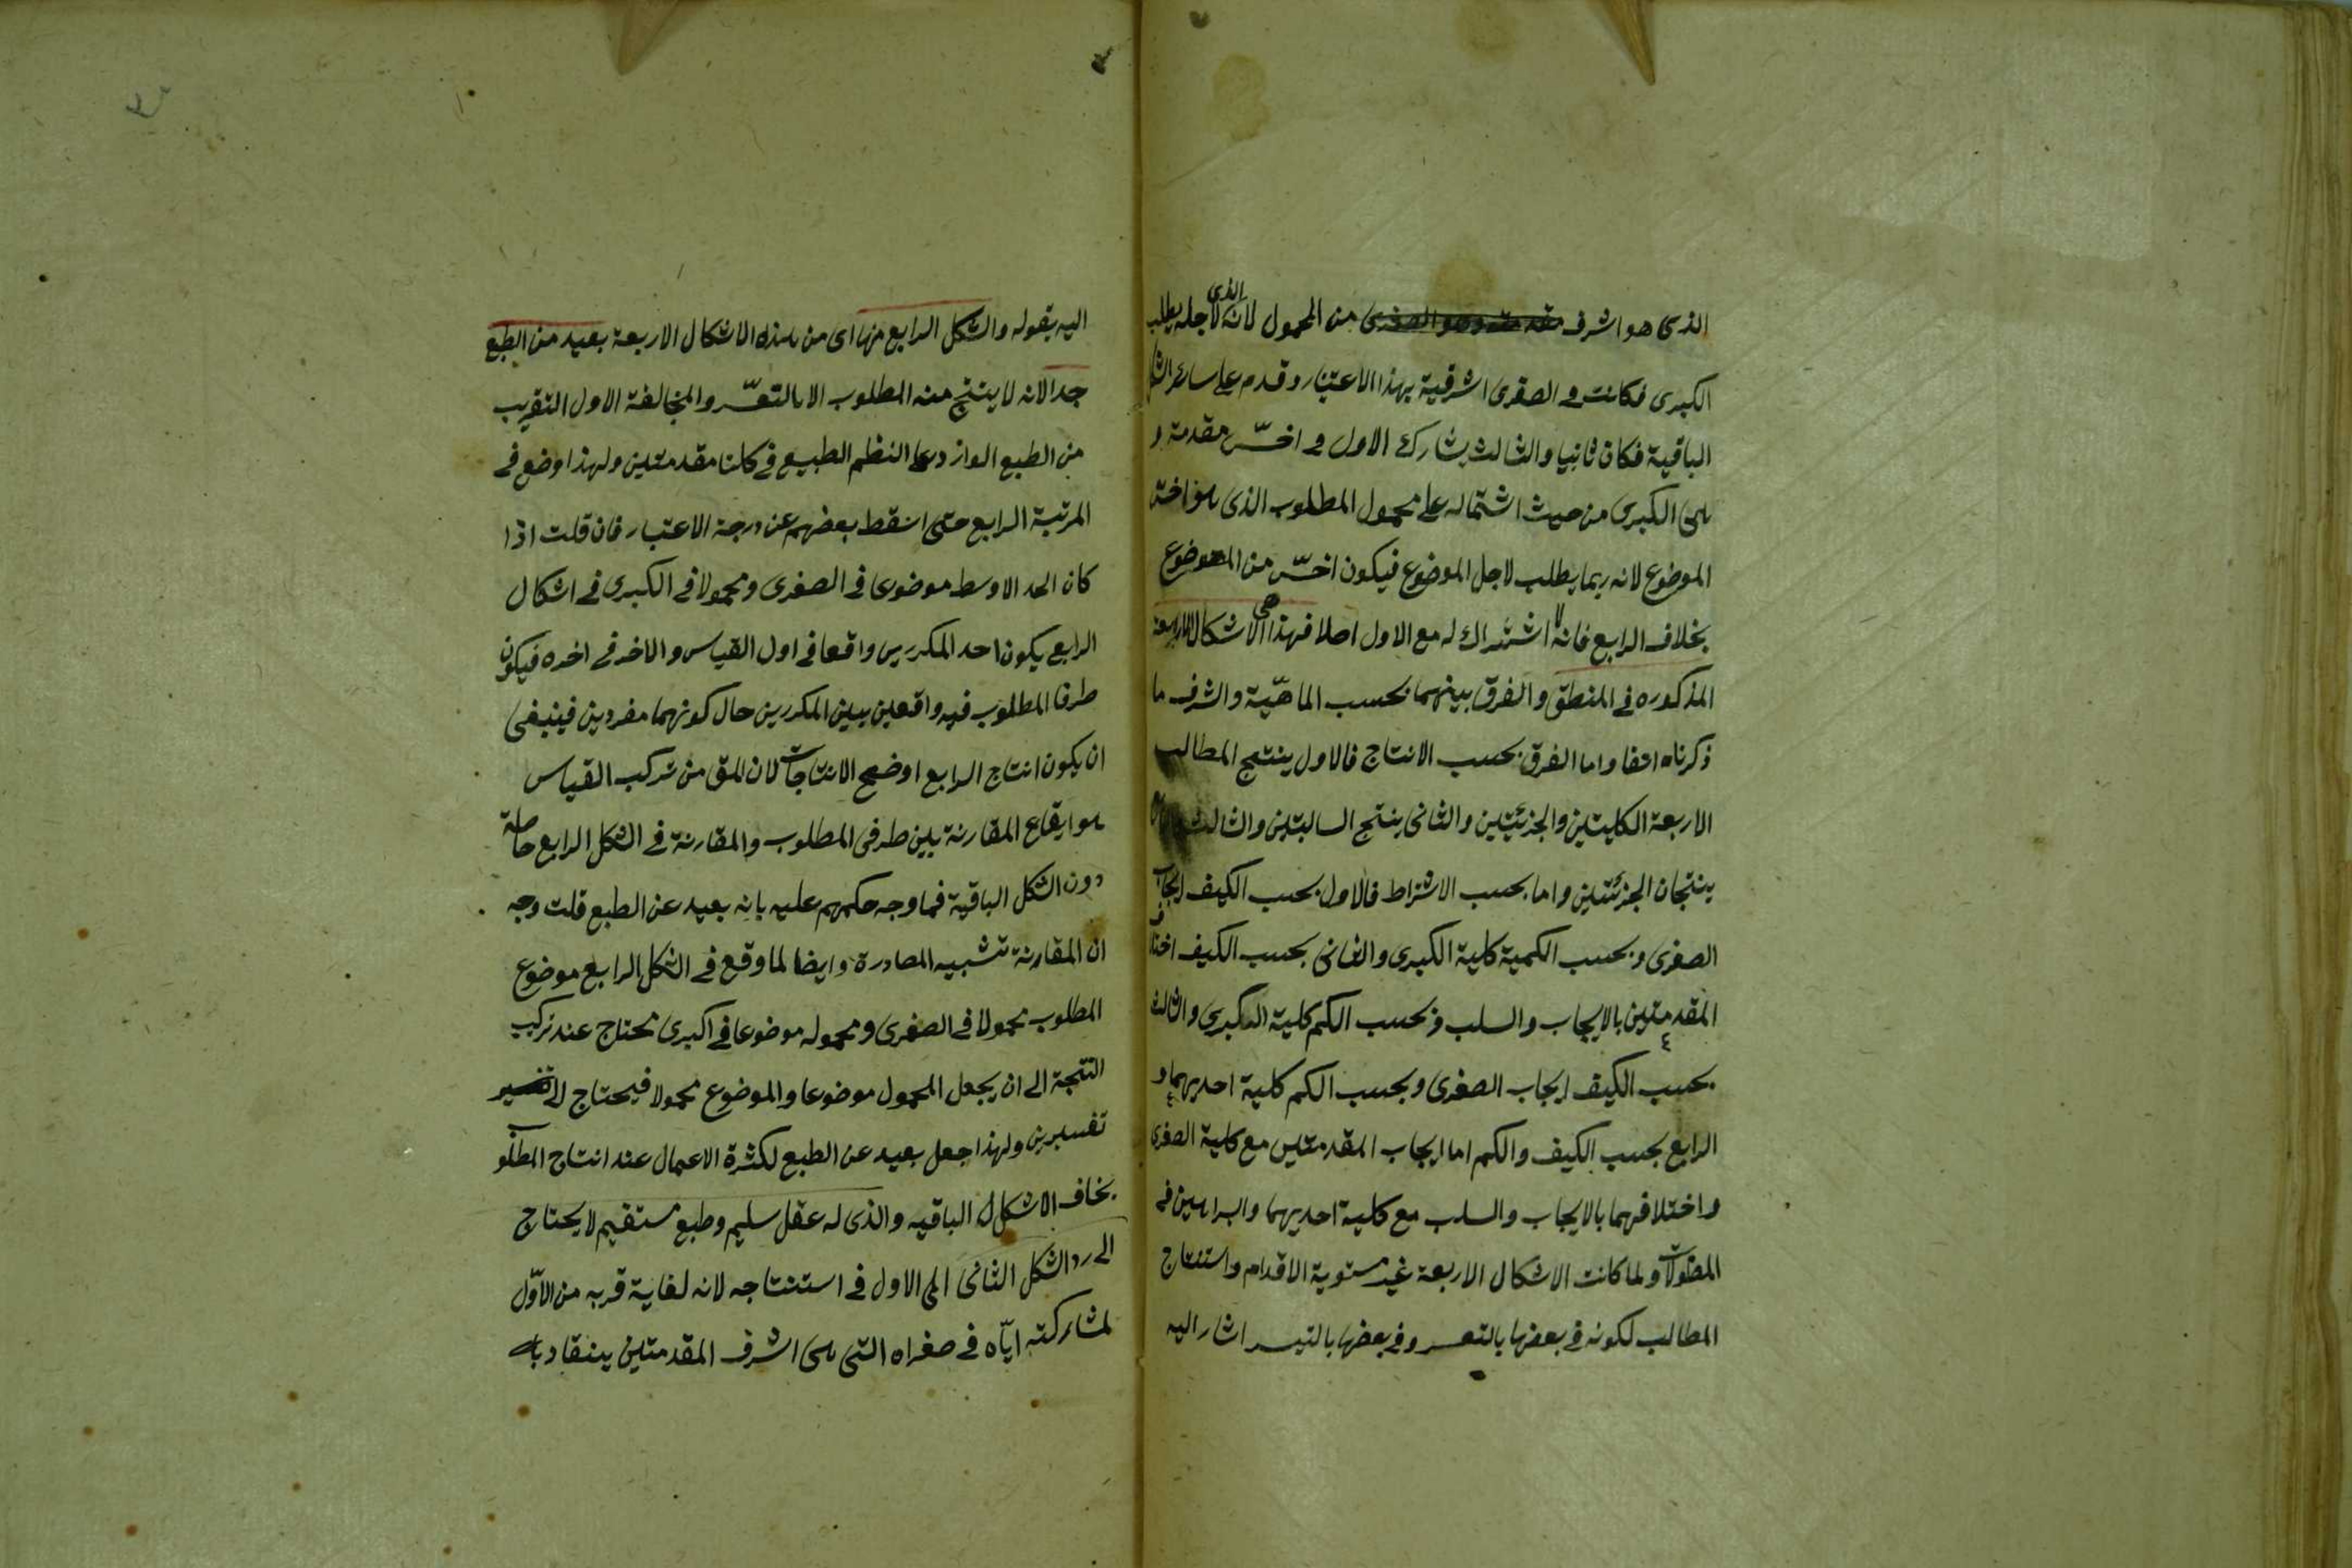 الذى هو اشرف من المحمول لانه الذى لاجله يطلب
الكبرى فكانت فى الصغرى اشرفية بهذا الاعتبار وقدم على سائر
الباقية فكان ثانيا والثالث يشارك الاول فى اخسّ مقدمة و
هى الكبرى من حيث اشتماله على محمول المطلوب الذى هو اخسّ
الموضوع لانه ربما يطلب لاجل الموضوع فيكون اخسّ من الموضوع
بخلاف الرابع فانه لا اشتراك له مع الاول اصلا فهذا هى الاشكال الاربعة
المذكوره فى المنطق والفرق بينهما بحسب الماهيّة والشرف ما
ذكرناه واما الفرق بحسب الانتاج فالاول ينتج المطالب
الاربعة الكليتين والجزئيتين والثانى ينتج السالبتين والثالث
ينتجان الجزئيتين واما بحسب الاشتراط فالاول بحسب الكيف ايجاب
الصغرى وبحسب الكمية كلية الكبرى والثانى بحسب الكيف اختلاف
المقدمتين بالايجاب والسلب وبحسب الكم كلية الكبرى والثالث
بحسب الكيف ايجاب الصغرى وبحسب الكم كلية احديهما و
الرابع بحسب الكيف والكم اما ايجاب المقدمتين مع كلية الصغرى
واختلافهما بالايجاب والسلب مع كلية احديهما والبراهين فى
المطولات ولما كانت الاشكال الاربعة غير مستوية الاقدام واستنتاج
المطالب لكونه فى بعضها بالتعسر وفى بعضها بالتيسر اشار اليه
اليه بقوله والشكل الرابع منها اى من هذه الاشكال الاربعة بعيد من الطبع
جدا لانه لا ينتج منه المطلوب الا بالتعسّر والمخالفة الاول القريب
من الطبع الوارد على النظم الطبيع فى كلتا مقدمتين ولهذا وضع فى
المرتبة الرابع حتى اسقط بعضهم عن درجة الاعتبار فان قلت اذا
كان الحد الاوسط موضوعا فى الصغرى ومحمولا فى الكبرى فى اشكال
الرابع يكون احد المكررين واقعا فى اول القياس والاخر فى اخره فيكون
طرفا المطلوب فيه واقعين بين المكررين حال كونهما مفردين فينبغى
ان يكون انتاج الرابع اوضح الانتاجات لان من تركب القياس
هو ايقاع المقارنة بين طرفى المطلوب والمقارنة فى الشكل الرابع حاصلة
دون الشكل الباقية فما وجه حكمهم عليه بانه بعيد عن الطبع قلت وجه
ان المقارنة تشبيه المصادرة وايضا لما وقع فى الشكل الرابع موضوع
المطلوب محمولا فى الصغرى ومحموله موضوعا فى اكبرى نحتاج عند تركيب
النتجة الى ان يجعل المحمول موضوعا والموضوع محمولا فيحتاج الى
تفسيرين ولهذا جعل بعيد عن الطبع لكثرة الاعمال عند انتاج المطلو
بخاف الاشكال الباقيه والذى له عقل سليم وطبع مستقيم لا يحتاج
الى رد الشكل الثانى الى الاول فى استنتاجه لانه لغاية قربه من الاوّل
لمشاركته ايّاه فى صغراه التى هى اشرف المقدمتين ينقاد به